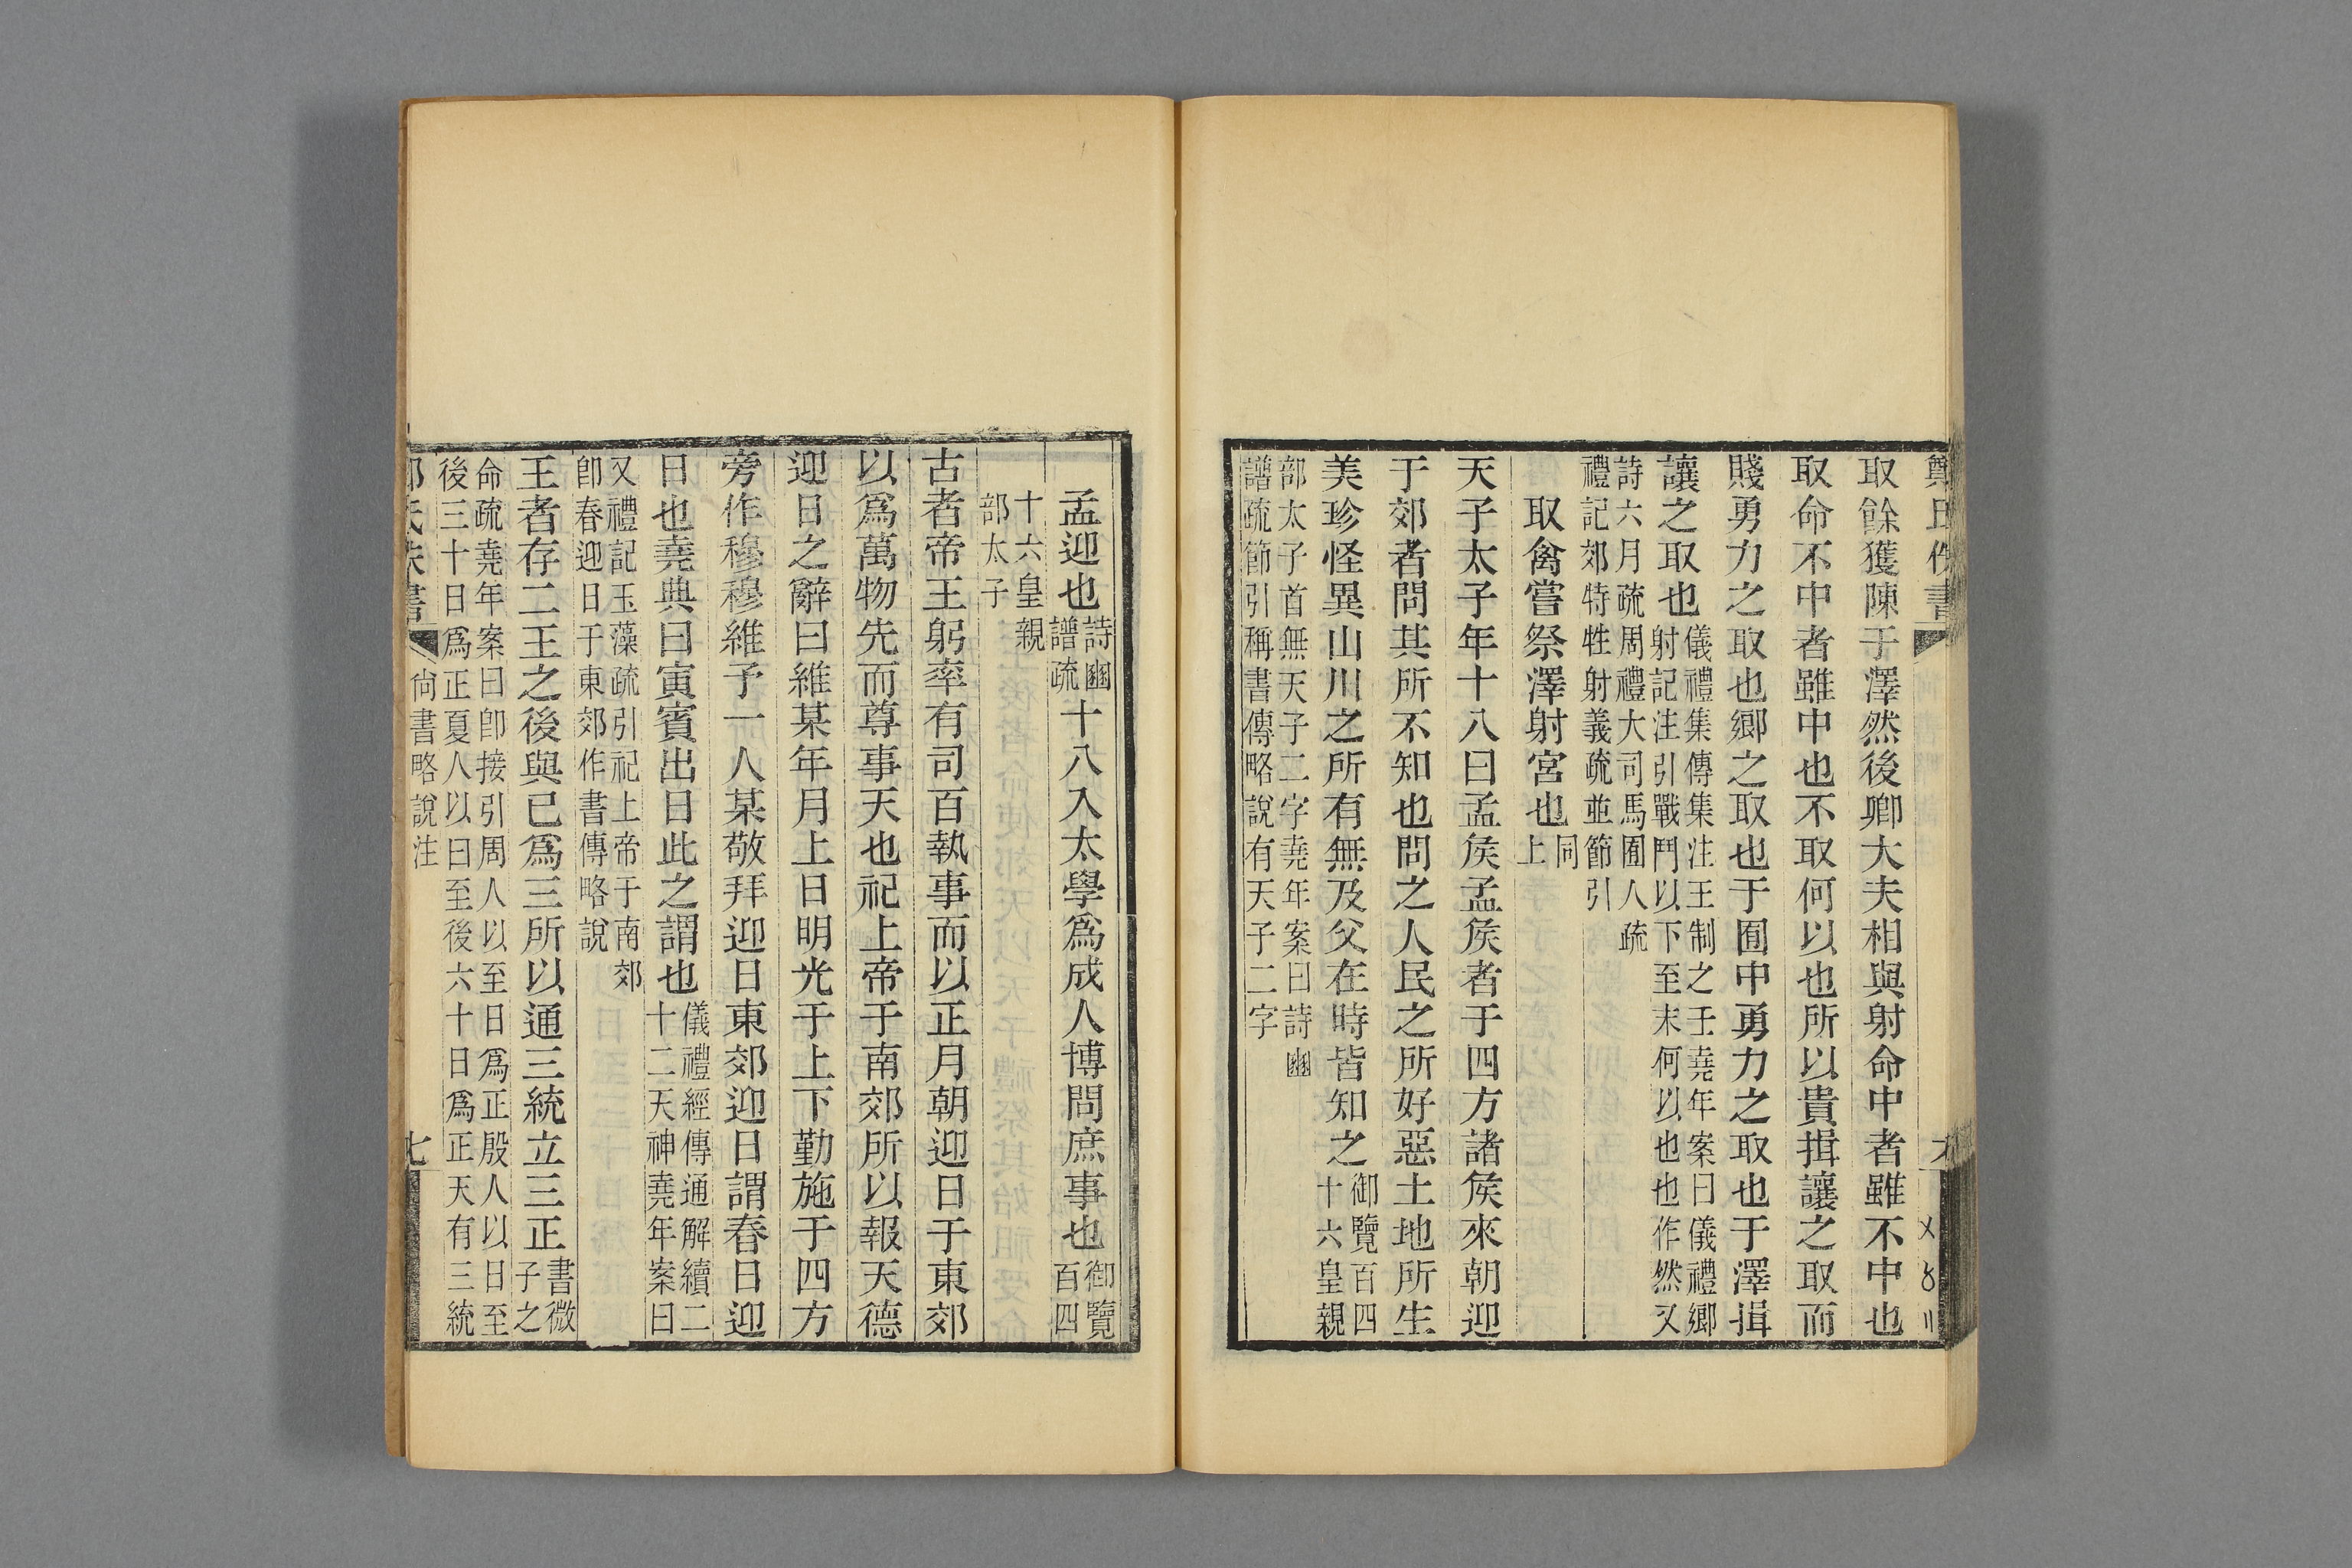 氏佚書
取餘獲陳于澤然後卿大夫相與射命中者雖不中也
取命不中者雖中也不取何以也所以貴揖讓之取而
賤勇力之取也鄉之取也于囿中勇力之取也于澤揖
讓之取也儀禮集傳集注王制之壬堯年案曰儀禮鄉
射記注引戰鬥以下至末何以也也作然又
詩六月疏周禮大司馬囿人疏
禮記郊特牲射義疏並節引
取禽嘗祭澤射宮也同
上
天子太子年十八曰孟矦孟矦者于四方諸矦來朝迎
于郊者問其所不知也問之人民之所好惡土地所生
美珍怪異山川之所有無及父在時皆知之御覽百四
十六皇親
部太子首無天子二字堯年案曰詩豳
譜疏節引稱書傳略說有天子二字
孟迎也詩豳
譜疏十八入太學爲成人博問庶事也御覽
百四
十六皇親
部太子
古者帝王躬率有司百執事而以正月朝迎日于東郊
以爲萬物先而尊事天也祀上帝于南郊所以報天德
迎日之辭曰維某年月上日明光于上下勤施于四方
旁作穆穆維予一人某敬拜迎日東郊迎日謂春日迎
日也堯典曰寅賓出日此之謂也儀禮經傳通解續二
十二天神堯年案曰
又禮記玉藻疏引祀上帝于南郊
卽春迎日于東郊作書傳略說
王者存二王之後與已爲三所以通三統立三正書微
子之
命疏堯年案曰卽接引周人以至日爲正殷人以日至
後三十日爲正夏人以曰至後六十日爲正天有三統
氏佚書
尙書略說注
七